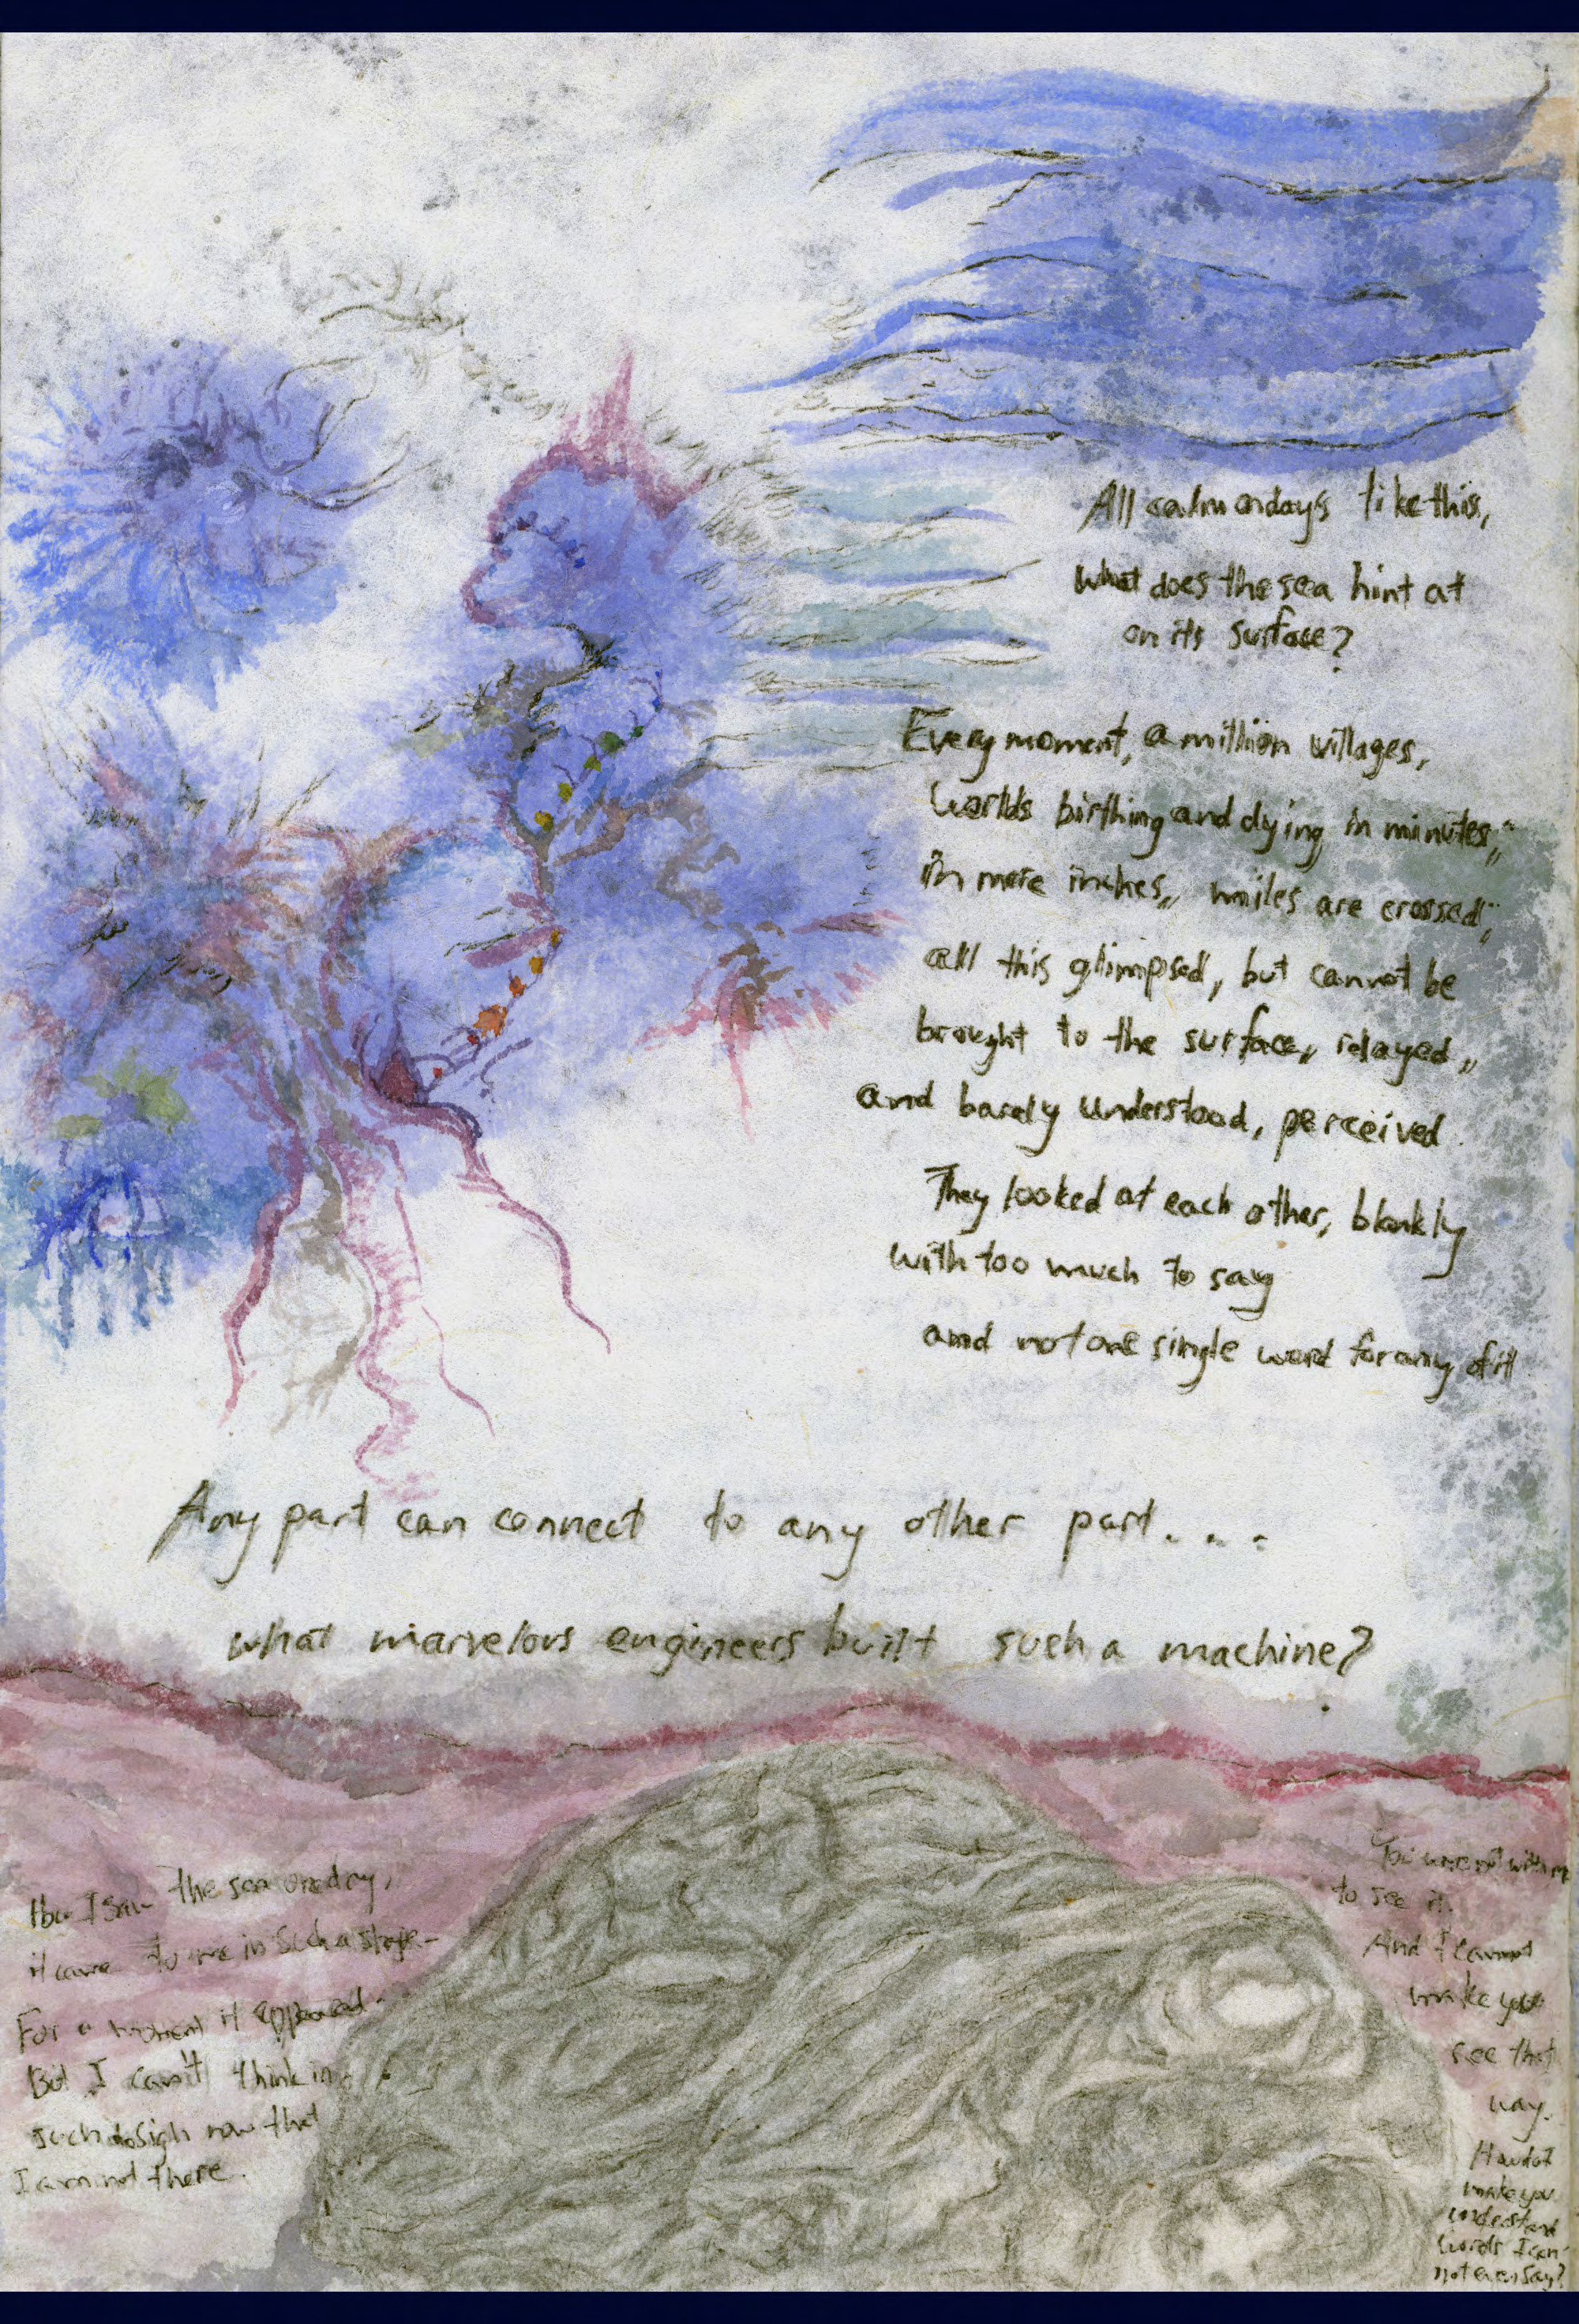 All calm on days like this,
What does the sea hint at
on its surface?
Every moment, a million villages,
Worlds birthing and dying in minutes,
in mere inches, miles are crossed,
all this glimpsed, but cannot be
brought to the surface, relayed,
and barely understood, perceived
They looked at each other, blankly
with too much to say
and not one single word for any of it
Any part can connect to any other part...
what marvelous engineers built such a machine?
How I saw the sea one day,
it came to me in such a shape-
For a moment it appeared-
But I can't think in
such design now that
I am not there.
You were not with me
to see it.
And I cannot
make you
see that
way.
How do I
make you
understand
words I can-
not even say?